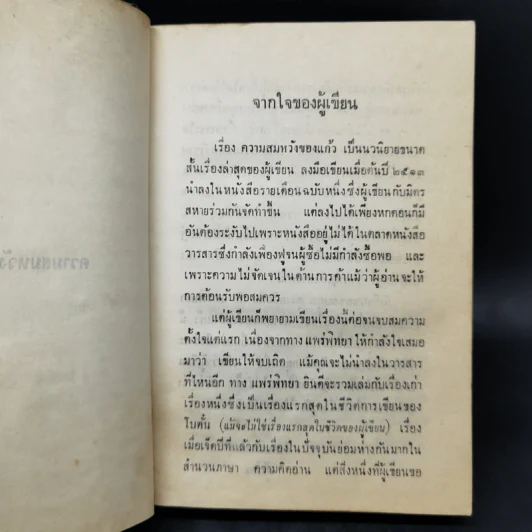 จากใจของผู้เขียน
เรื่อง ความสมหวังของแก้ว เป็นนวนิยายขนาด
สั้นเรื่องล่าสุดของผู้เขียน ลงมือเขียนเมื่อต้นปี ๒๕๑๓
นำลงในหนังสือรายเดือนฉบับหนึ่งซึ่งผู้เขียนกับมิตร
สหายร่วมกันจัดทำขึ้น แต่ลงไปได้เพียงหกตอนก็มี
อันต้องระงับไปเพราะหนังสืออยู่ไม่ได้ในตลาดหนังสือ
วารสารซึ่งกำลังเฟื่องฟูจนผู้ซื้อไม่มีกำลังซื้อพอ และ
เพราะความไม่จัดเจนในด้านการค้าแม้ว่าผู้อ่านจะให้
การต้อนรับพอสมควร
แต่ผู้เขียนก็พยายามเขียนเรื่องนี้ต่อจนจบสมความ
ตั้งใจแต่แรก เนื่องจากทาง แพร่พิทยา ให้กำลังใจเสมอ
มาว่า เขียนให้จบเถิด แม้คุณจะไม่นำลงในวารสาร
ที่ไหนอีก ทาง แพร่พิทยา ยินดีจะรวมเล่มกับเรื่องเก่า
เรื่องหนึ่งซึ่งเป็นเรื่องแรกสุดในชีวิตการเขียนของ
โบตั๋น (แม้จะไม่ใช่เรื่องแรกสุดในชีวิตของผู้เขียน) เรื่อง
เมื่อเจ็ดปีที่แล้วกับเรื่องในปัจจุบันย่อมห่างกันมากใน
สำนวนภาษา ความคิดอ่าน แต่สิ่งหนึ่งที่ผู้เขียนขอ